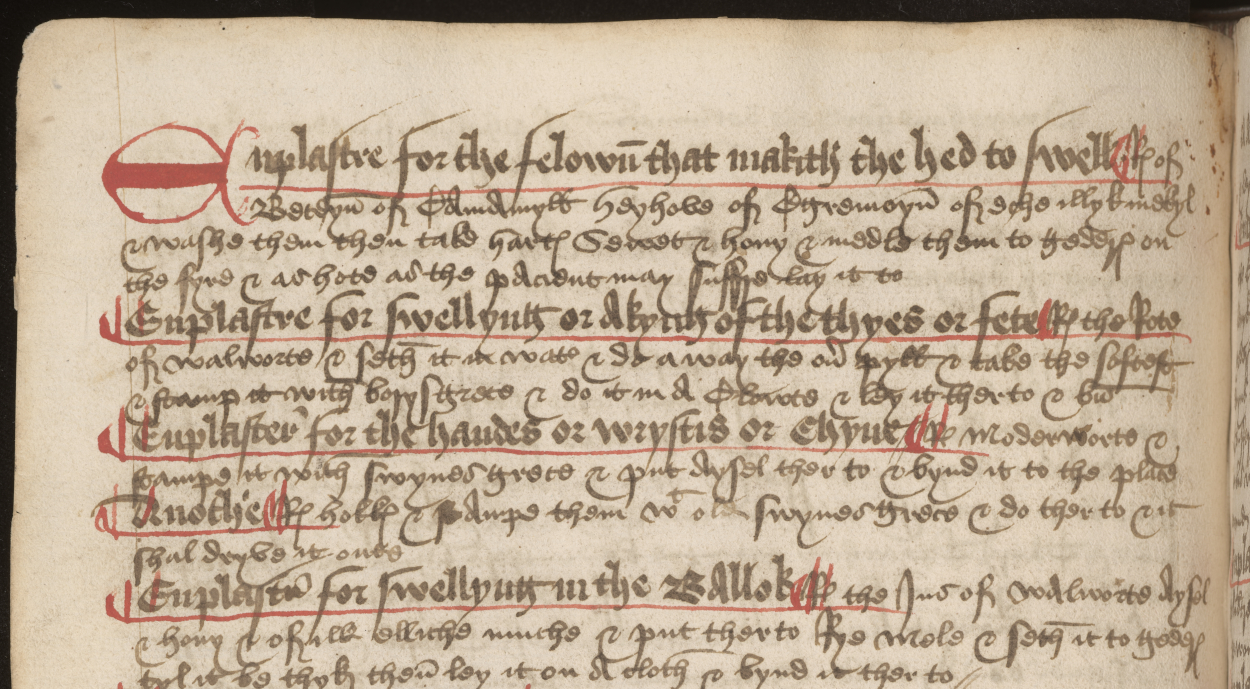 Enplastre for the felown̄ that makith the hed to swell ℞ of
Beteyn̄ of Camamyll heyhove of Egremoyn̄ of eche illyk mekyl
& washe them then take hart Sewet & hony & medle them to geder on
the fyre & as hote as the pacient may suffre lay it to
Enplastre for swellyng or Akyng of the thyes or fete ℞ the Rote
of walworte & seth it in wate & do away the ov̄ pyll & take the softest
& stamp it with borys grece & do it in A Clowte & ley it therto &
Enplaster for the handes or wrystis or Chyne ℞ Moderworte &
stampe it with swynes grece & put Aysel ther to & bynd it to the place
Anothe ℞ holk & stampe them wt old swynes grece & do ther to & it
shal dryve it oute
Enplastr̄ for swellyng in the Ballok ℞ the Jus of walworte Aysel
& hony & of ilk elliche muche & put therto Rye Mele & seth it to geder
tyl it be thyk then̄ ley it on A cloth & bynd it ther to